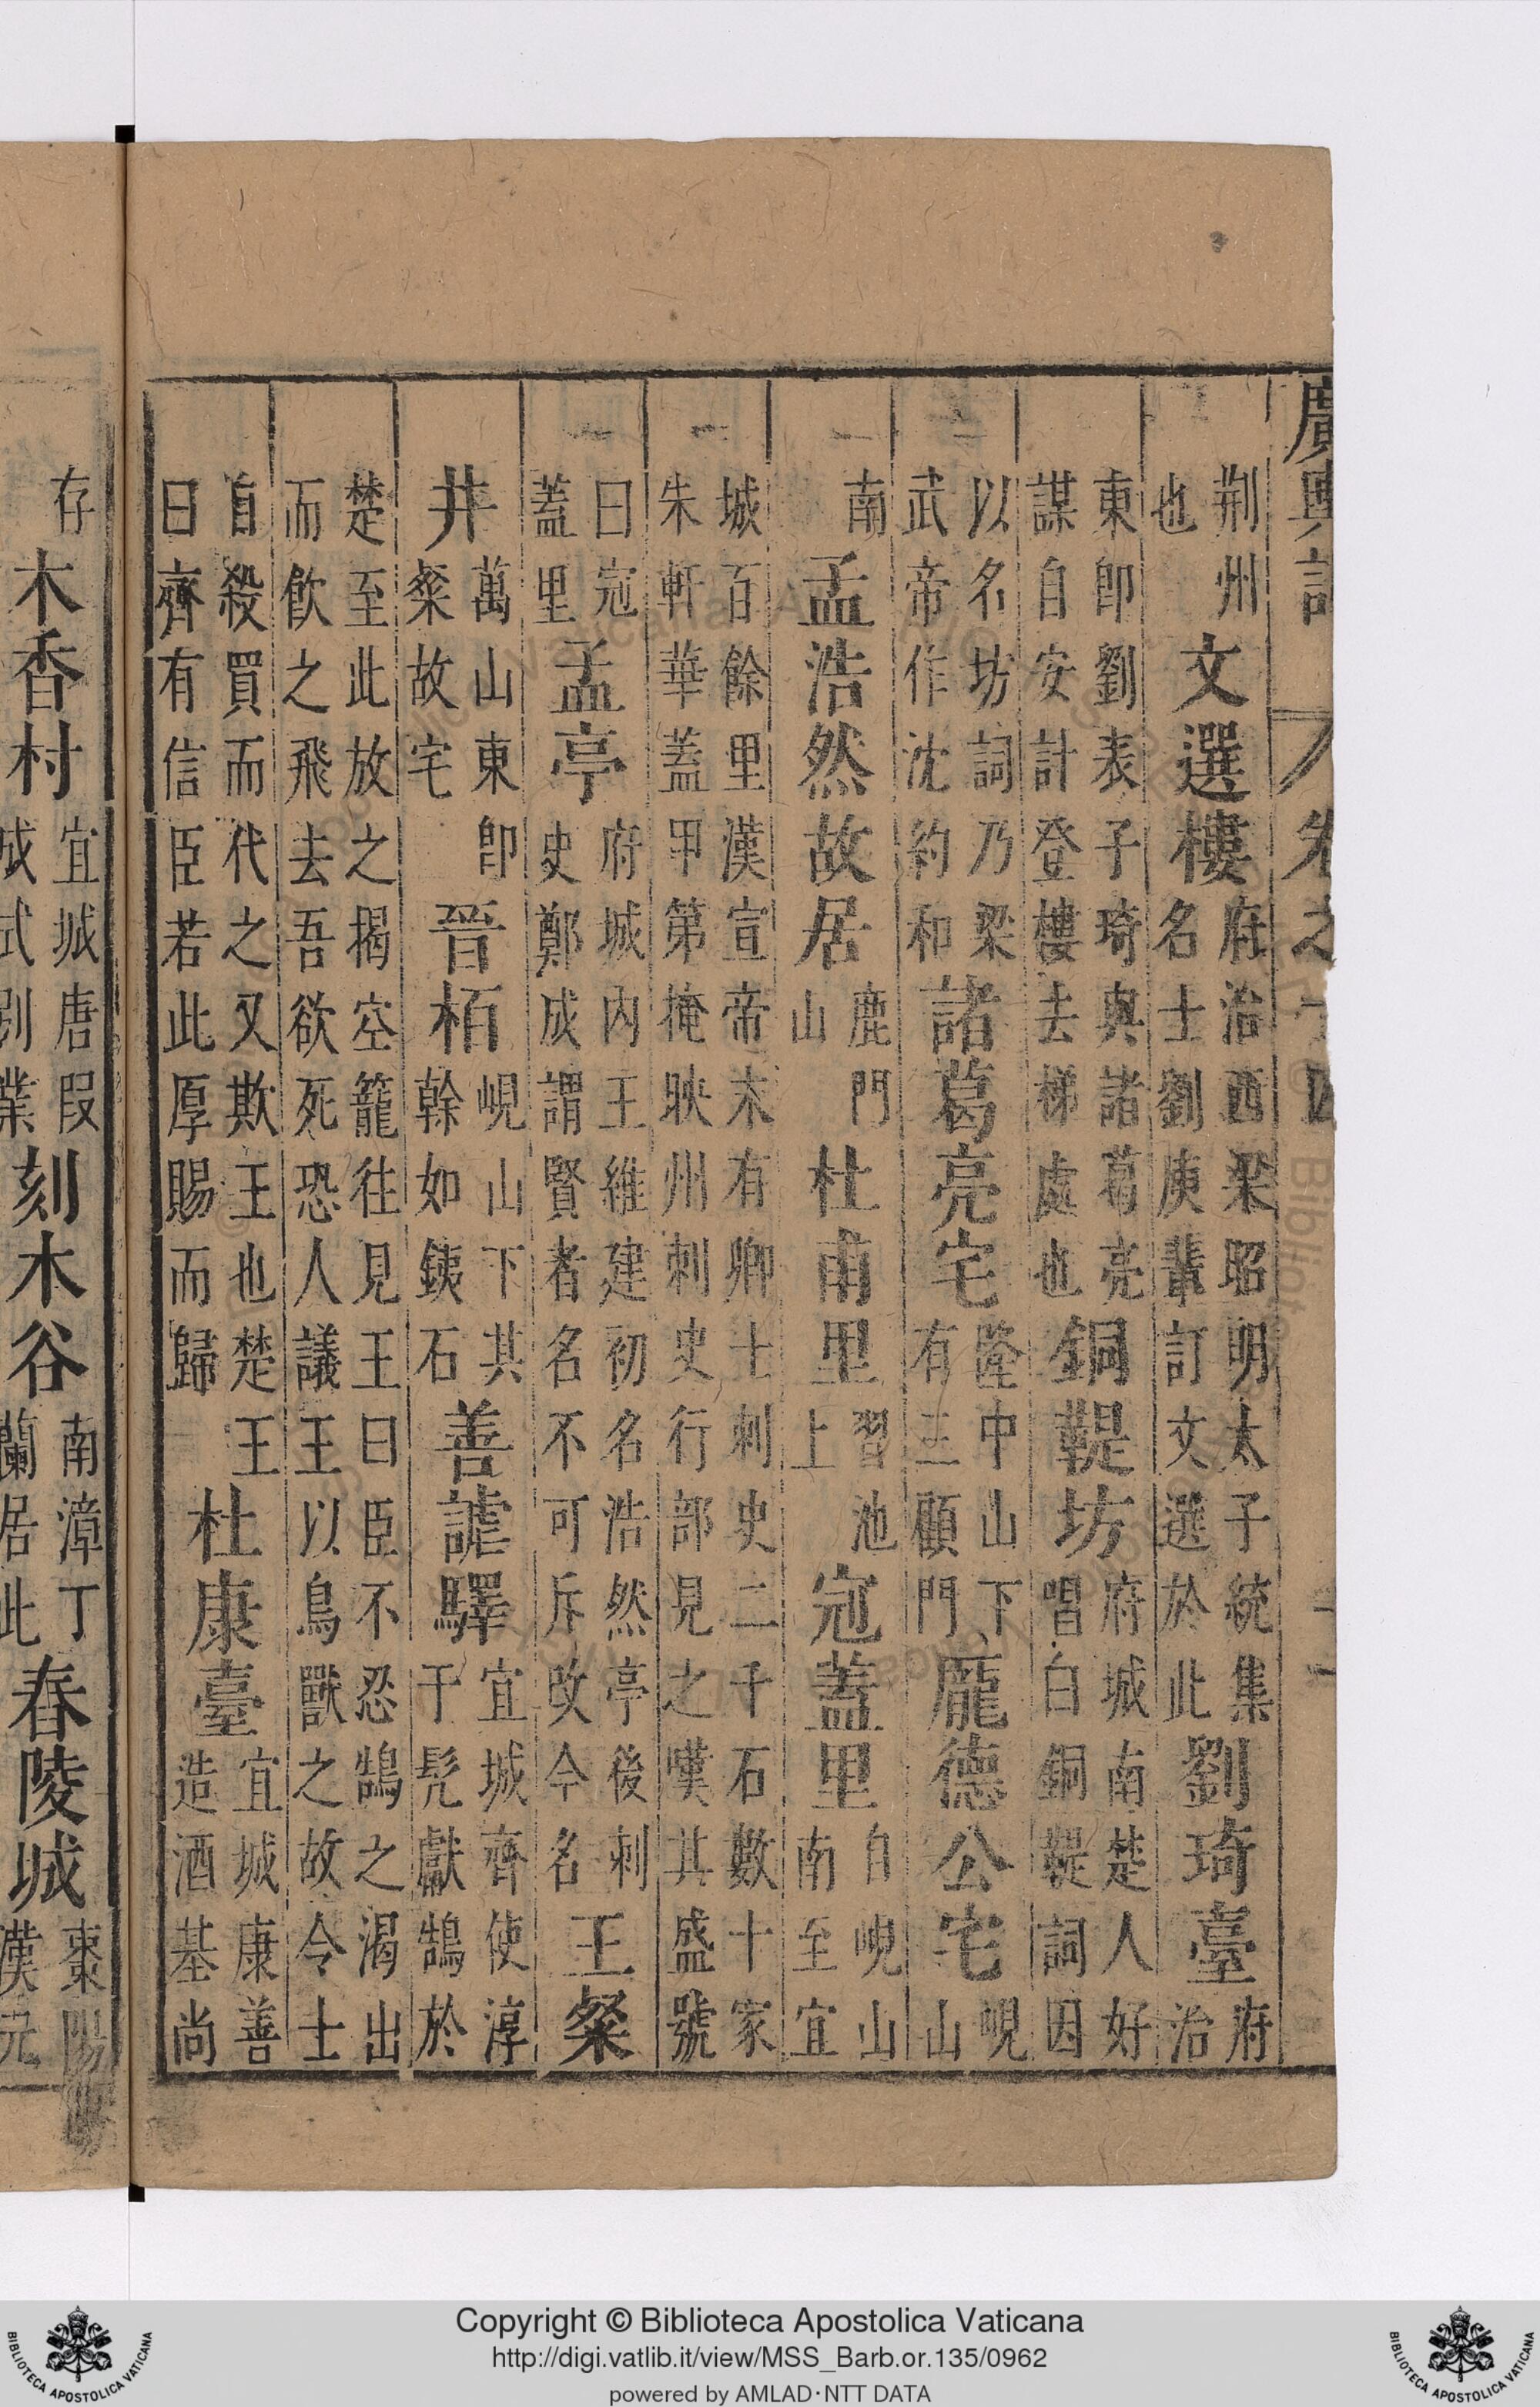 廣輿記 卷之十四
荆州
也
文選樓
府治西梁昭明太子統集
名士劉庚輩訂文選於此
劉琦臺
府
治
東即劉表子琦與諸葛亮
謀自安計登樓去梯處也
銅鞮坊
府城南楚人好
唱白銅鞮詞因
以名坊詞乃梁
武帝作沈約和
諸葛亮宅
隆中山下
有三顧門
龐德公宅
峴
山
南
孟浩然故居
鹿門
山
杜甫里
習池
上
冠蓋里
自峴山
南至宜
城百餘里漢宣帝末有卿士刺史二千石數十家
朱軒華蓋甲第掩映州刺史行部見之嘆其盛號
曰冠
蓋里
孟亭
府城内王維建初名浩然亭後刺
史鄭成謂賢者名不可斥改今名
王粲
井
萬山東即
粲故宅
晉栢
峴山下其
幹如鉄石
善謔驛
宜城齊使淳
于髠獻鵠於
楚至此放之揭空籠往見王曰臣不忍鵠之渴出
而飲之飛去吾欲死恐人議王以鳥獸之故令士
自殺買而代之又欺王也楚王
曰齊有信臣若此厚賜而歸
杜康臺
宜城康善
造酒基尚
存
木香村
宜城唐段
成式别業
刻木谷
南漳丁
蘭居此
春陵城
棗陽
漢元
Copyright © Biblioteca Apostolica Vaticana
http://digi.vatlib.it/view/MSS_Barb.or.135/0962
powered by AMLAD·NTT DATA
BIBLIOTECA APOSTOLICA VATICANA
BIBLIOTECA APOSTOLICA VATICANA